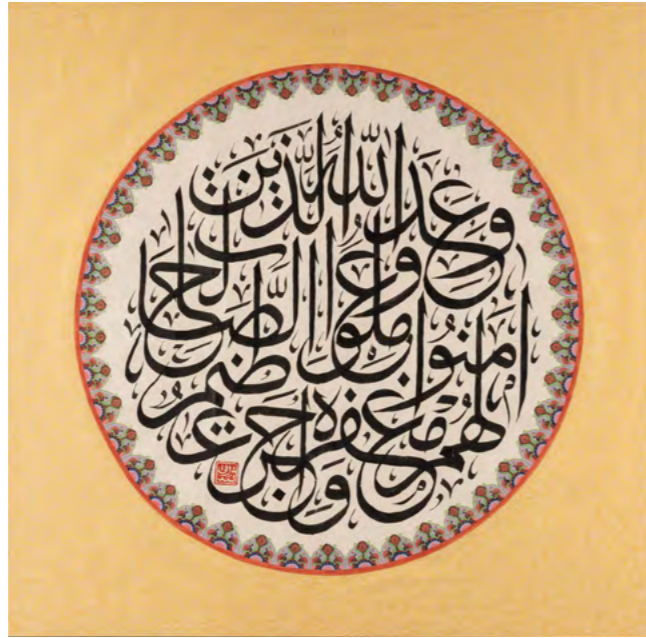 وَعَدَ اللّٰهُ الَّذِينَ
اٰمَنُوا وَعَمِلُوا الصَّالِحَاتِ
لَهُم مَّغْفِرَةٌ وَأَجْرٌ عَظِيمٌ